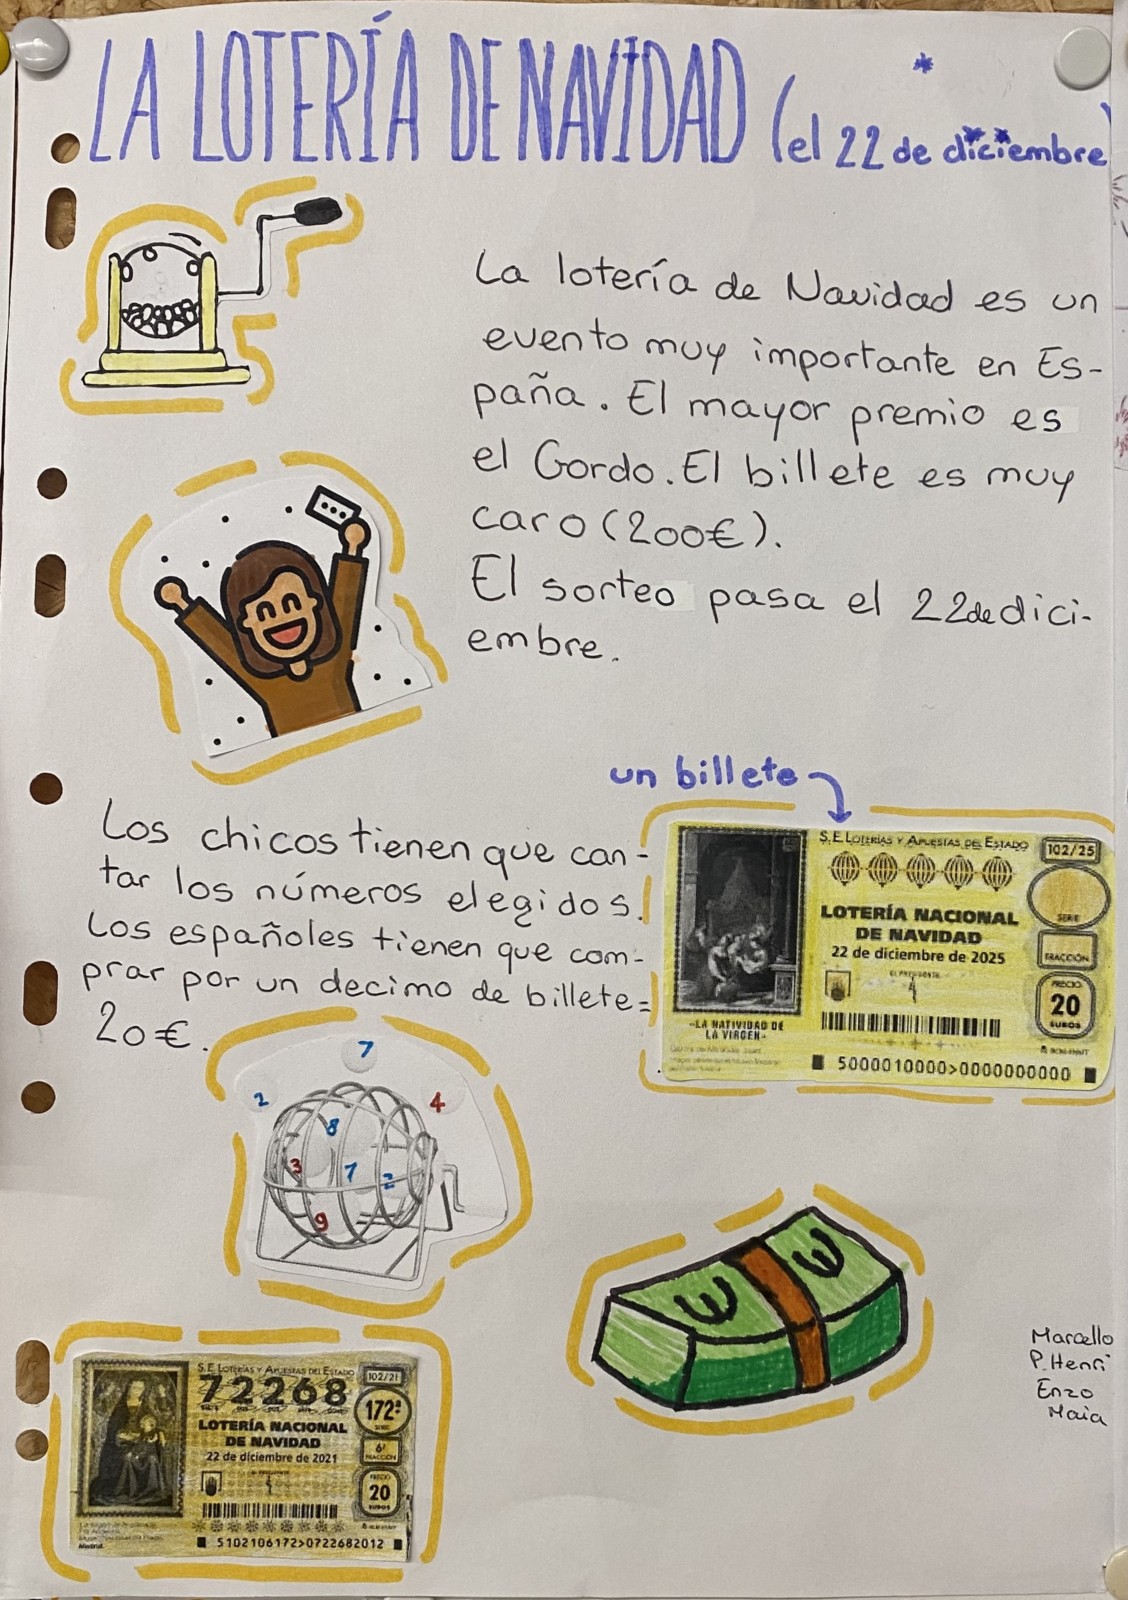 LA LOTERÍA DE NAVIDAD (el 22 de diciembre)
La lotería de Navidad es un
evento muy importante en Es-
paña. El mayor premio es
el Gordo. El billete es muy
caro (200€).
El sorteo pasa el 22 de dici-
embre.
un billete
Los chicos tienen que can-
tar los números elegidos.
Los españoles tienen que com-
prar por un decimo de billete=
20€.
S.E. LOTERÍAS Y APUESTAS DEL ESTADO
102/25
LOTERÍA NACIONAL
DE NAVIDAD
22 de diciembre de 2025
SERIE
FRACCIÓN
EL PRESIDENTE
PRECIO
20
EUROS
«LA NATIVIDAD DE
LA VIRGEN»
5000010000>0000000000
7
2
4
8
3
7
2
9
€ €
Marcello
P.Henri
Enzo
Maia
S.E. LOTERÍAS Y APUESTAS DEL ESTADO
102/21
72268
172ª
SERIE
LOTERÍA NACIONAL
DE NAVIDAD
22 de diciembre de 2021
6ª
FRACCIÓN
PRECIO
20
EUROS
Madrid.
5102106172>0722682012